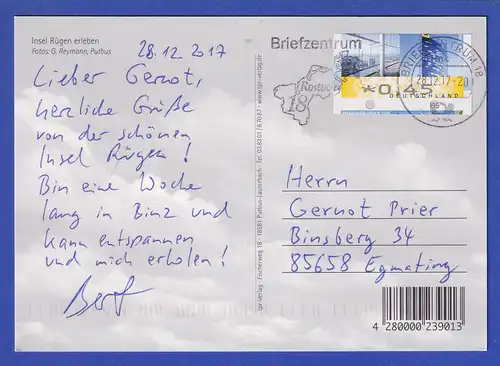 Insel Rügen erleben
Fotos: G. Reymann, Putbus
28.12.2017
Lieber Gernot,
herzliche Grüße
von der schönen
Insel Rügen!
Bin eine Woche
lang in Binz und
kann entspannen
und mich erholen!
Bert
spr-Verlag · Fischerweg 18 · 18581 Putbus-Lauterbach · Tel. 038301 / 87087 · www.spr-verlag.de
Briefzentrum
Rostock
18
BRIEFZENTRUM 18
28.12.17-20
*0,45
DEUTSCHLAND
Herrn
Gernot Prier
Binsberg 34
85658 Egmating
4 280000 239013